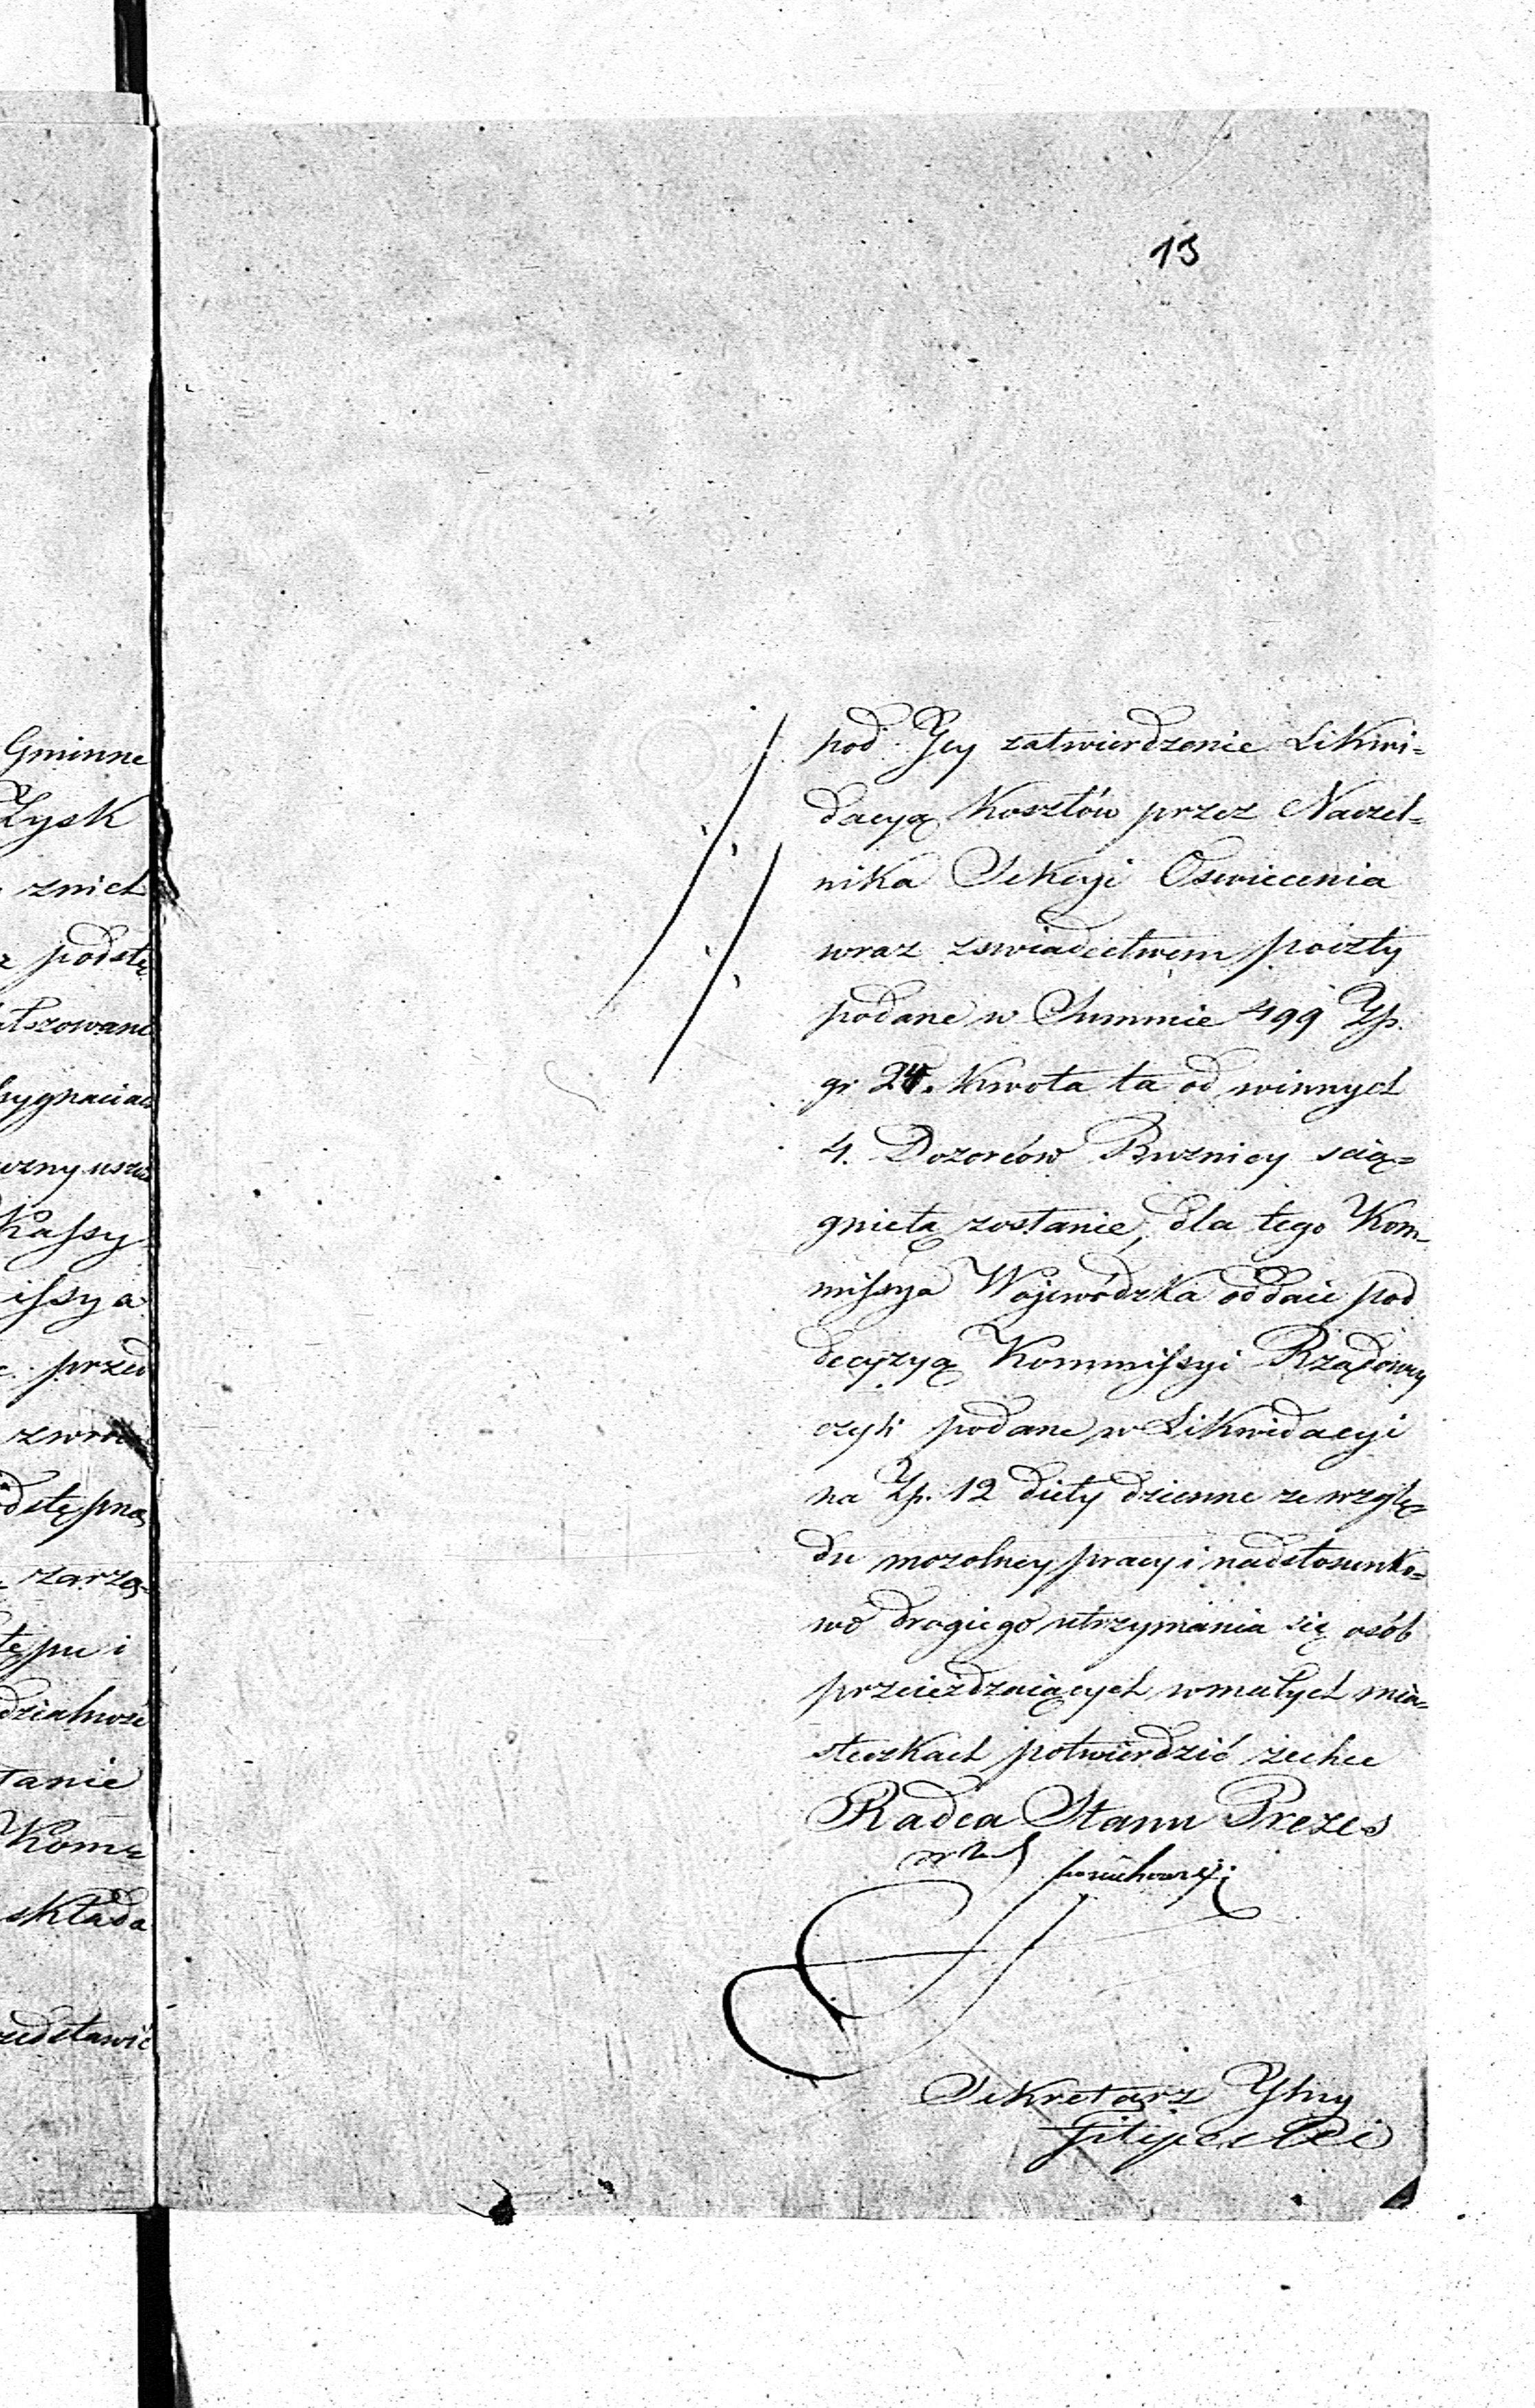 13
Gminne
Zysk
znich
podstę
Kassy
issya
przed
zarzą-
tępu i
tanie
Kom-
składa
pod Jey zatwierdzenie Likwi-
dacyą Kosztów przez Naczel-
nika Sekcyi Oswiecenia
wraz zswiadectwem poczty
podane w Summie 499 Zp.
gr 24. Kwota ta od winnych
4. Dozorców Buznicy scią-
gnięta zostanie, dla tego Kom-
missya Wojewódzka oddaie pod
decyzyą Kommissyi Rządowey
czyli podane w Likwidacyi
na Zp. 12 diety dzienne ze wzglę-
du mozolney pracy i nadstosunko-
wo drogiego utrzymania się osób
przeieżdzaiących wmałych mia-
steczkach potwierdzić zechce
Radca Stanu Prezes
Sekretarz Jlny
Filipecki